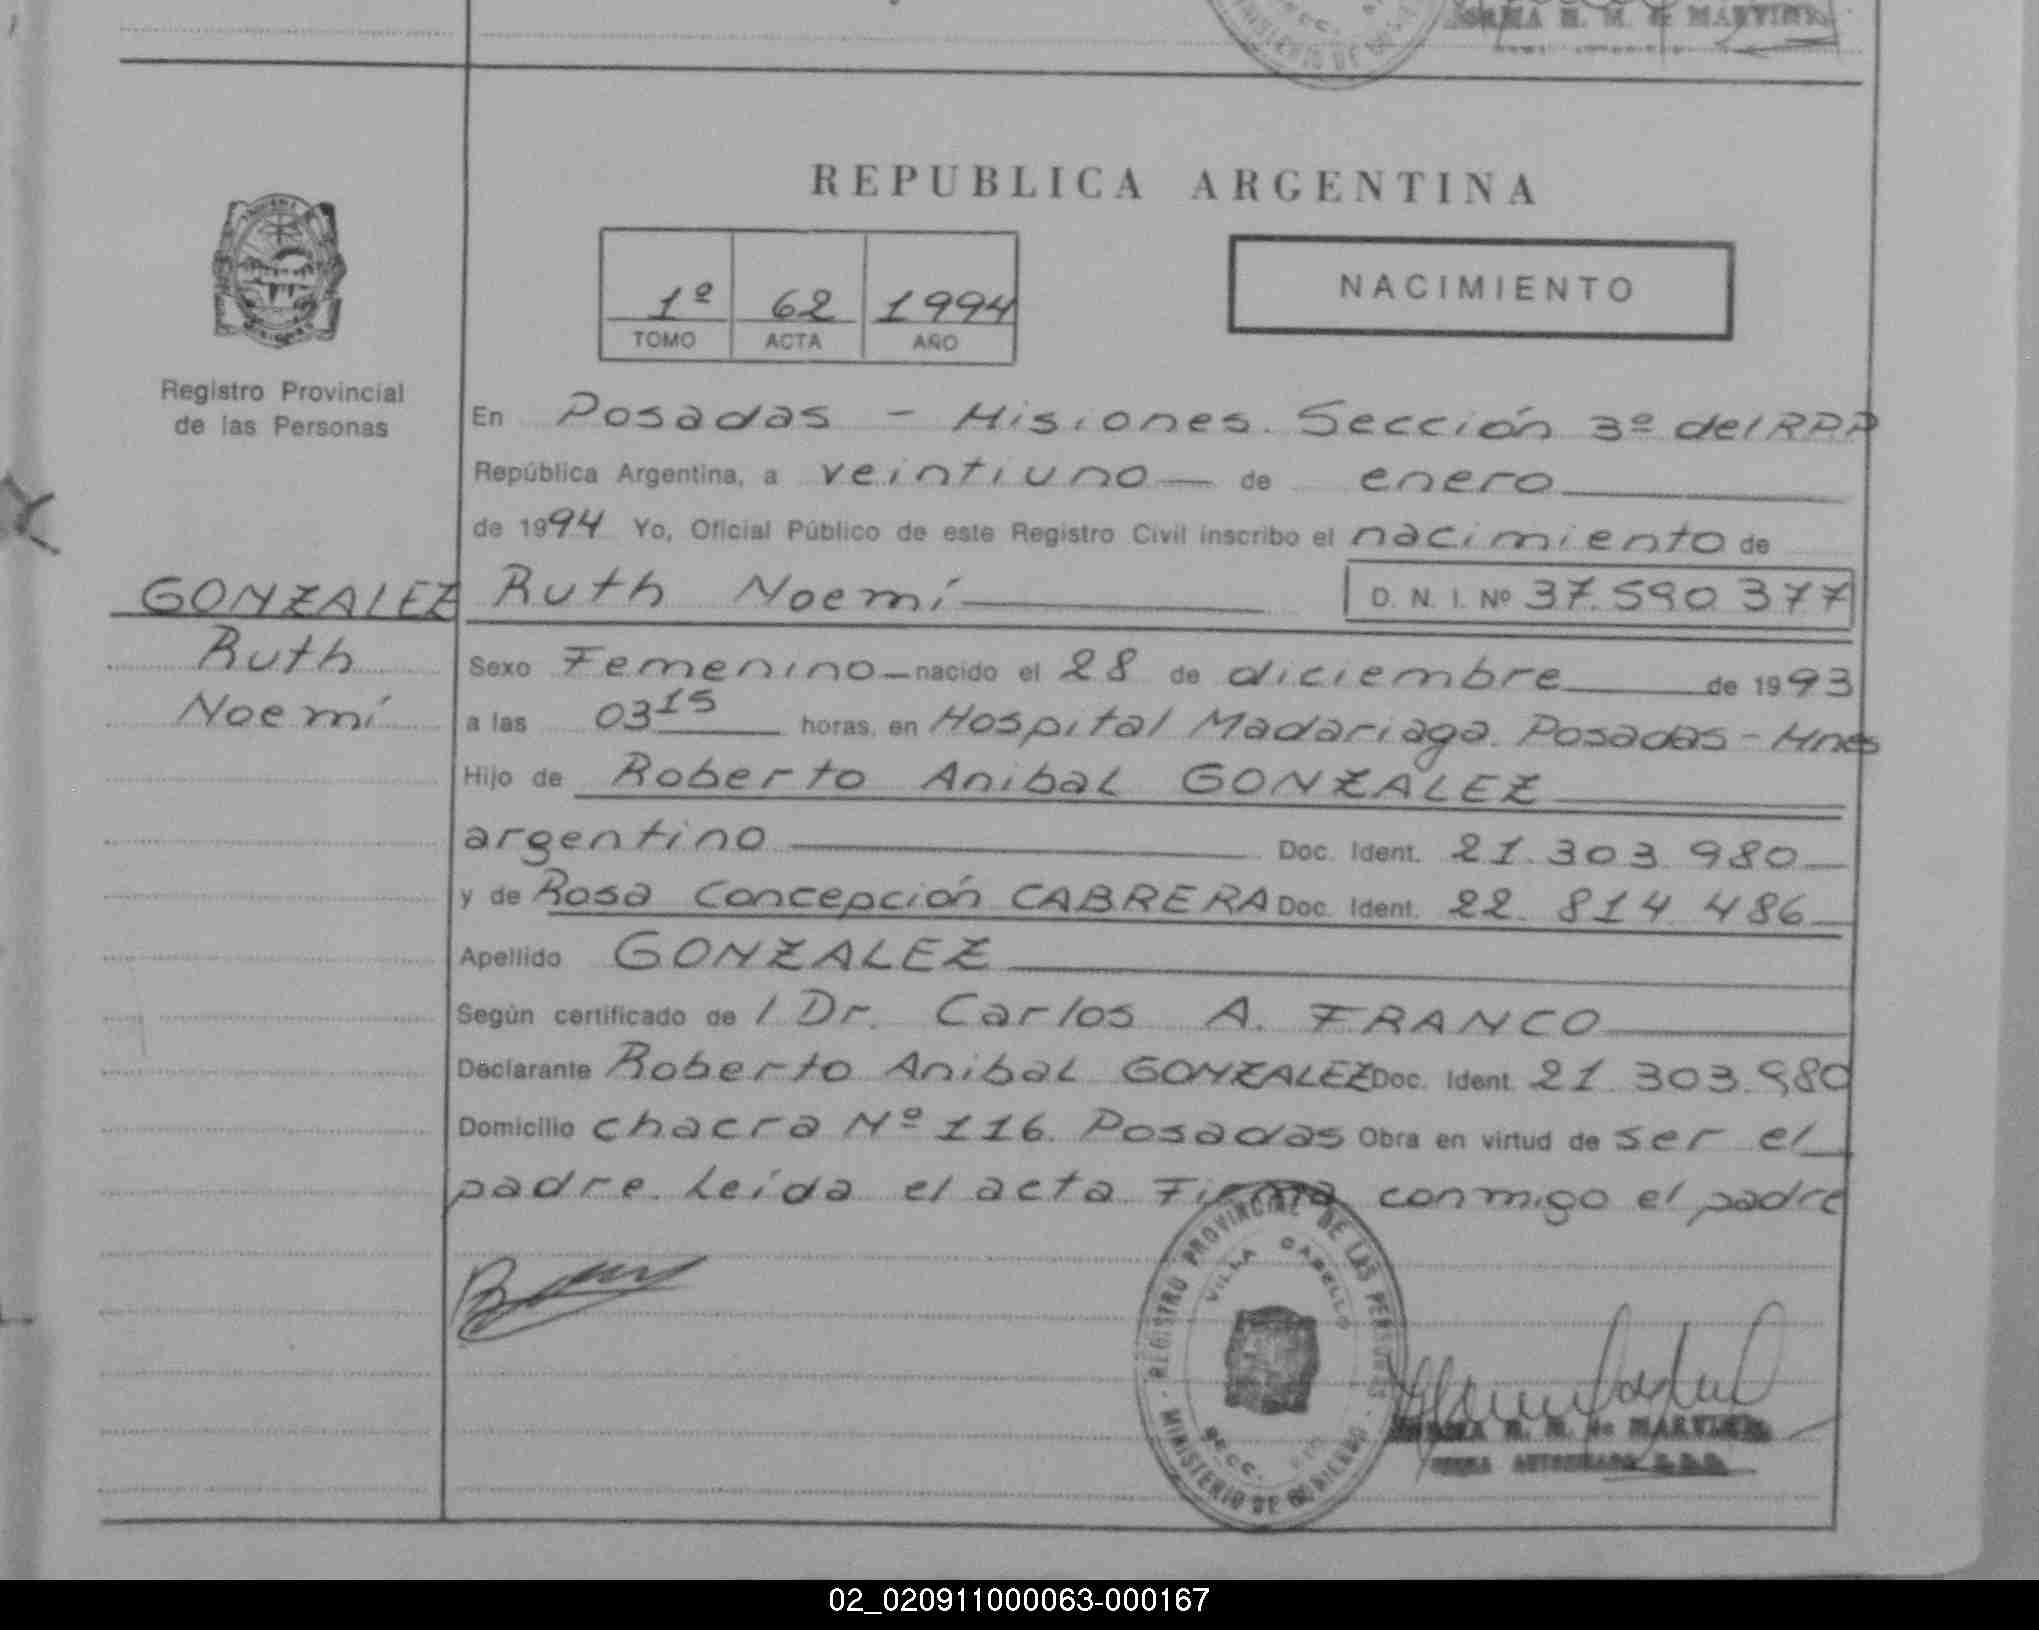 REPUBLICA ARGENTINA
1º 62 1994
TOMO ACTA AÑO
NACIMIENTO
Registro Provincial
de las Personas
GONZALEZ
Ruth
Noemí
En Posadas - Misiones. Sección 3º del RPP
República Argentina, a veintiuno de enero
de 1994 Yo, Oficial Público de este Registro Civil inscribo el nacimiento de
Ruth Noemí D. N. I. Nº 37.590.377
Sexo Femenino nacido el 28 de diciembre de 1993
a las 03 15 horas, en Hospital Madariaga. Posadas - Mnes
Hijo de Roberto Anibal GONZALEZ
argentino Doc. Ident. 21.303.980
y de Rosa Concepción CABRERA Doc. Ident. 22.814.486
Apellido GONZALEZ
Según certificado de l Dr. Carlos A. FRANCO
Declarante Roberto Anibal GONZALEZ Doc. Ident. 21.303.980
Domicilio chacra Nº 116. Posadas Obra en virtud de ser el
padre. Leída el acta Firma conmigo el padre
REGISTRO PROVINCIAL DE LAS PERSONAS
VILLA CABELLO
SECC.
MINISTERIO DE GOBIERNO
02_020911000063-000167